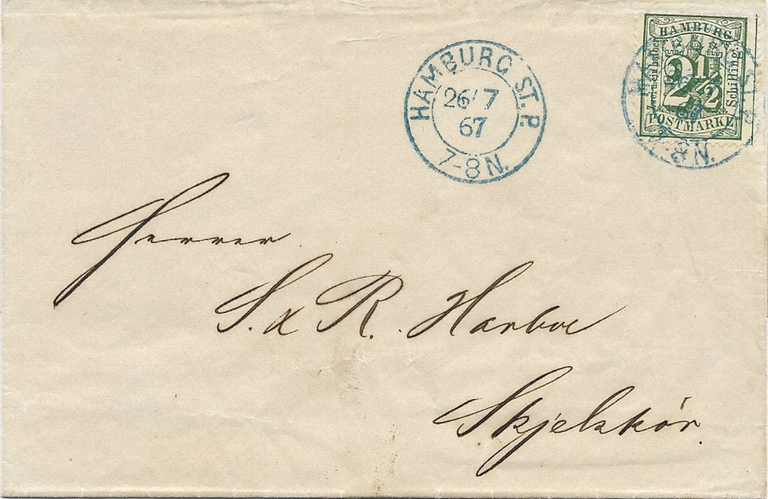 HAMBURG ST. P.
26/7
67
7-8 N.
HAMBURG
2 1/2
Schilling
POSTMARKE
8 N.
Herren
S. & R. Harboe
Skjelskör.